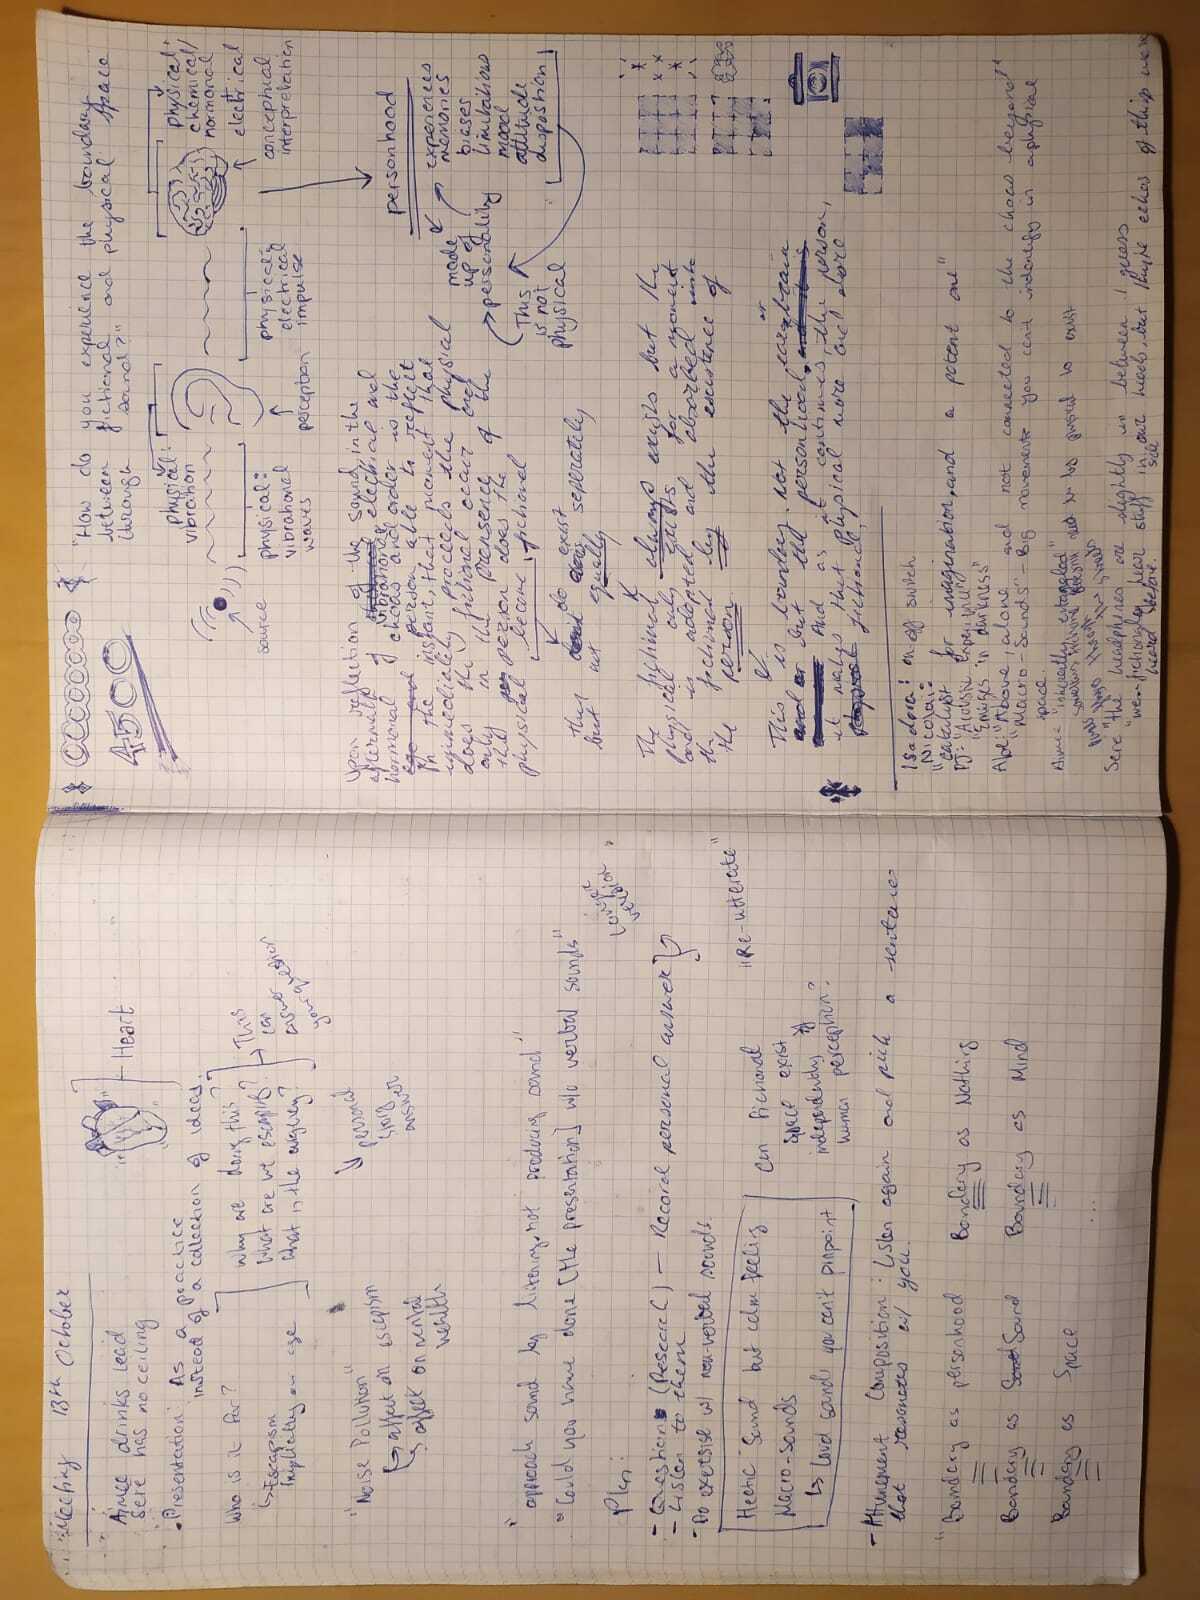 Meeting 13th October
Aimee drinks lead
Sere has no ceiling
Heart
• Presentation: As a practice
instead of a collection of ideas.
Who is it for?
↳ Escapism
implicitly on age
Why are doing this?
What are we escaping?
What is the urgency?
This
can
answer
your question
personal
story
answer
"Noise Pollution"
↳ affect on escapism
↳ affect on mental
health
"approach sound by listening, not producing sound"
"Could you have done [the presentation] w/o verbal sounds"
Longer
version
Plan:
- Questions (Research) — Record personal answer
- Listen to them
- Do exersise w/ non-verbal sounds.
Hectic sound but calm feeling
Macro-sounds
↳ Loud sounds you can't pinpoint
Can fictional
space exist
independently of
human perception?
"Re-utterate"
- Attunement Composition: Listen again and pick a sentence
that resonates w/ you.
"Boundary as personhood
Boundary as Nothing
Boundary as Sound
Boundary as Mind
Boundary as Space
...
4500
"How do you experience the boundary
between fictional and physical space
through sound?"
physical:
vibration
physical:
chemical/
hormonal
+
electrical
source
physical:
vibrational
waves
perception
physical:
electrical
impulse
conceptual
interpretation
Upon reflection of the sound, in the
aftermath of vibrational, electrical and
hormonal choas and order is the
person able to reflect
In the instant, that moment that
immediality proceeds the physical
does the fictional occur and
only in the prensence of the
the person does the
physical become fictional
personhood
made
up of
personality
experiences
memories
biases
limitations
mood
attitude
dispostion
This
is not
physical
they do exist seperately
but not equally
The fictional always exists but the
physical only exists for a moment
and is adopted and absorbed into
the fictional by the existence of
the person.
This is boundary. Not the ear or brain
but the personhood.
And as it continues, the person,
it makes that physical more and more
fictional.
Isadora: on-off switch
Nicolai:
"catalyst for imagination, and a potent one"
PJ: "Acoustic Experience"
"Emerges in darkness"
Abe: "Above, alone and not connected to the chaos beyond"
"Macro-Sounds" - Big movements you can't indentify in a physical
space.
Aimee "inherently entangled"
something fictional doesn't need to be physical to exist
through the streets
Sere "the headphones are slightly in between I guess
"we fictionaly hear stuff in our heads, but they're echos of things we've
heard before.